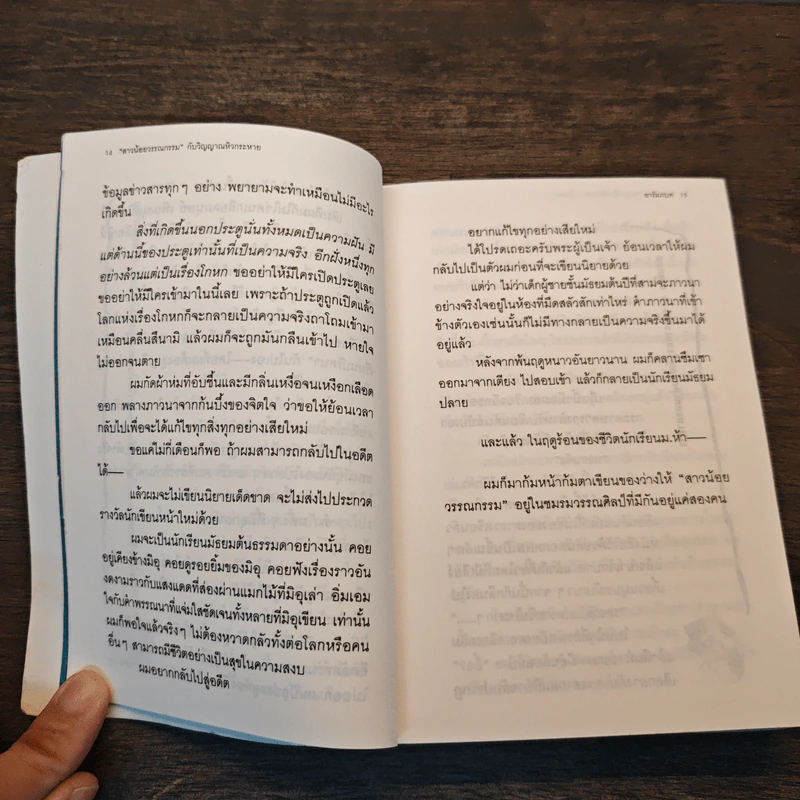 14 "สาวน้อยวรรณกรรม" กับวิญญาณหิวกระหาย
ข้อมูลข่าวสารทุกๆ อย่าง พยายามจะทำเหมือนไม่มีอะไร
เกิดขึ้น
สิ่งที่เกิดขึ้นนอกประตูนั่นทั้งหมดเป็นความฝัน มี
แต่ด้านนี้ของประตูเท่านั้นที่เป็นความจริง อีกฝั่งหนึ่งทุก
อย่างล้วนแต่เป็นเรื่องโกหก ขออย่าให้มีใครเปิดประตูเลย
ขออย่าให้มีใครเข้ามาในนี้เลย เพราะถ้าประตูถูกเปิดแล้ว
โลกแห่งเรื่องโกหกก็จะกลายเป็นความจริงถาโถมเข้ามา
เหมือนคลื่นสึนามิ แล้วผมก็จะถูกมันกลืนเข้าไป หายใจ
ไม่ออกจนตาย
ผมกัดผ้าห่มที่อับชื้นและมีกลิ่นเหงื่อจนเหงือกเลือด
ออก พลางภาวนาจากก้นบึ้งของจิตใจ ว่าขอให้ย้อนเวลา
กลับไปเพื่อจะได้แก้ไขทุกสิ่งทุกอย่างเสียใหม่
ขอแค่ไม่กี่เดือนก็พอ ถ้าผมสามารถกลับไปในอดีต
ได้—
แล้วผมจะไม่เขียนนิยายเด็ดขาด จะไม่ส่งไปประกวด
รางวัลนักเขียนหน้าใหม่ด้วย
ผมจะเป็นนักเรียนมัธยมต้นธรรมดาอย่างนั้น คอย
อยู่เคียงข้างมิอุ คอยดูรอยยิ้มของมิอุ คอยฟังเรื่องราวอัน
งดงามราวกับแสงแดดที่ส่องผ่านแมกไม้ที่มิอุเล่า อิ่มเอม
ใจกับคำพรรณนาที่แจ่มใสชัดเจนทั้งหลายที่มิอุเขียน เท่านั้น
ผมก็พอใจแล้วจริงๆ ไม่ต้องหวาดกลัวทั้งต่อโลกหรือคน
อื่นๆ สามารถมีชีวิตอย่างเป็นสุขในความสงบ
ผมอยากกลับไปสู่อดีต
อารัมภบท 15
อยากแก้ไขทุกอย่างเสียใหม่
ได้โปรดเถอะครับพระผู้เป็นเจ้า ย้อนเวลาให้ผม
กลับไปเป็นตัวผมก่อนที่จะเขียนนิยายด้วย
แต่ว่า ไม่ว่าเด็กผู้ชายชั้นมัธยมต้นปีที่สามจะภาวนา
อย่างจริงใจอยู่ในห้องที่มืดสลัวสักเท่าไหร่ คำภาวนาที่เข้า
ข้างตัวเองเช่นนั้นก็ไม่มีทางกลายเป็นความจริงขึ้นมาได้
อยู่แล้ว
หลังจากพ้นฤดูหนาวอันยาวนาน ผมก็คลานซึมเซา
ออกมาจากเตียง ไปสอบเข้า แล้วก็กลายเป็นนักเรียนมัธยม
ปลาย
และแล้ว ในฤดูร้อนของชีวิตนักเรียนม.ห้า—
ผมก็มาก้มหน้าก้มตาเขียนของว่างให้ "สาวน้อย
วรรณกรรม" อยู่ในชมรมวรรณศิลป์ที่มีกันอยู่แค่สองคน